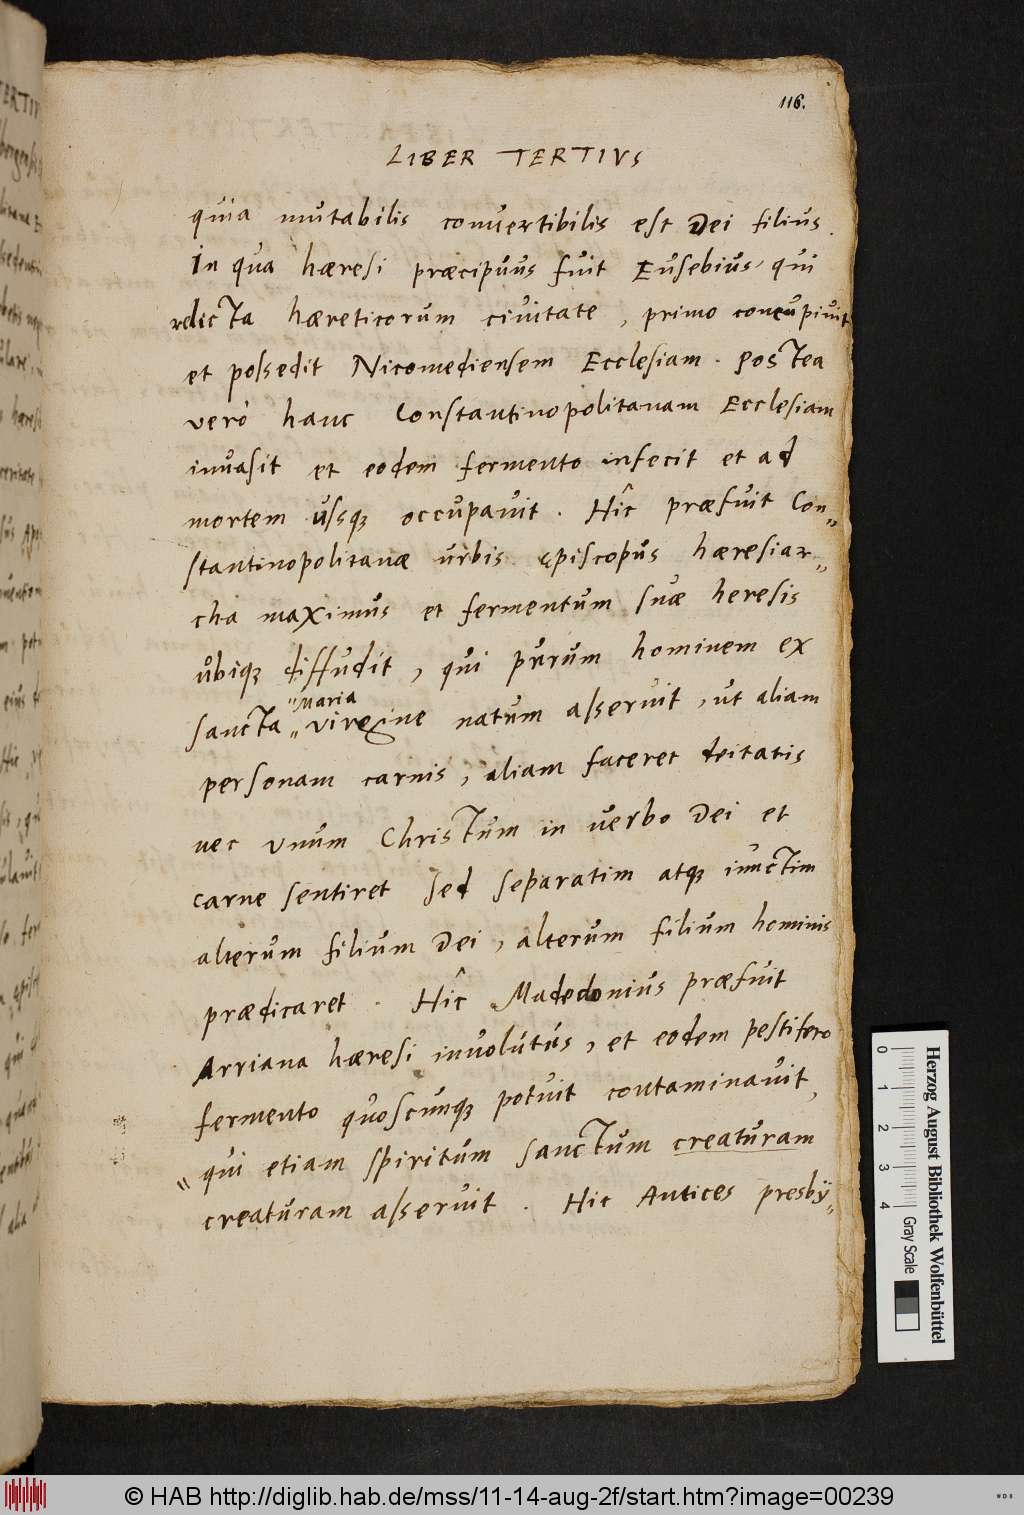 116.
LIBER TERTIVS
quia mutabilis convertibilis est Dei filius.
In qua hæresi præcipuus fuit Eusebius qui
relicta hæreticorum civitate, primo concupivit
et possedit Nicomediensem Ecclesiam. Postea
vero hanc Constantinopolitanam Ecclesiam
invasit et eodem fermento infecit et ad
mortem usq₃ occupavit. Hîc præfuit Con„
stantinopolitanæ urbis episcopus hæresiar„
cha maximus et fermentum suæ heresis
ubiq₃ diffudit, qui purum hominem ex
"Maria
sancta „ virgine natum asseruit, ut aliam
personam carnis, aliam faceret deitatis
nec unum Christum in verbo Dei et
carne sentiret sed separatim atq₃ iunctim
alterum filium Dei, alterum filium hominis
prædicaret. Hîc Madedonius præfuit
Arriana hæresi involutus, et eodem pestifero
fermento quoscunq₃ potuit contaminavit,
„ qui etiam spiritum sanctum creaturam
creaturam asseruit. Hic Antices presby„
Herzog August Bibliothek Wolfenbüttel
0 1 2 3 4 Gray Scale
© HAB http://diglib.hab.de/mss/11-14-aug-2f/start.htm?image=00239